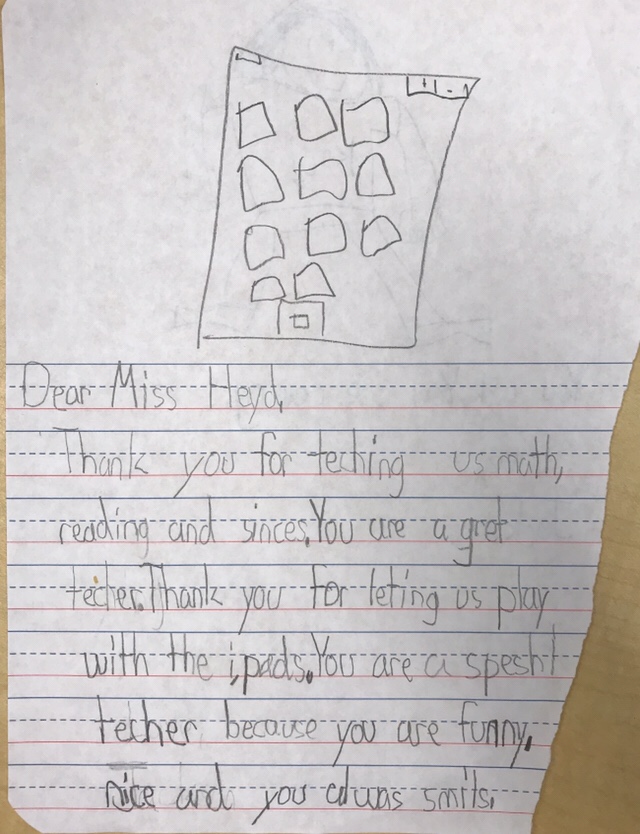 Dear Miss Heyd,
Thank you for teching us math,
reading and sinces. You are a gret
techer. Thank you for leting us play
with the ipads. You are a speshl
techer because you are funny,
nice and you alwas smils.